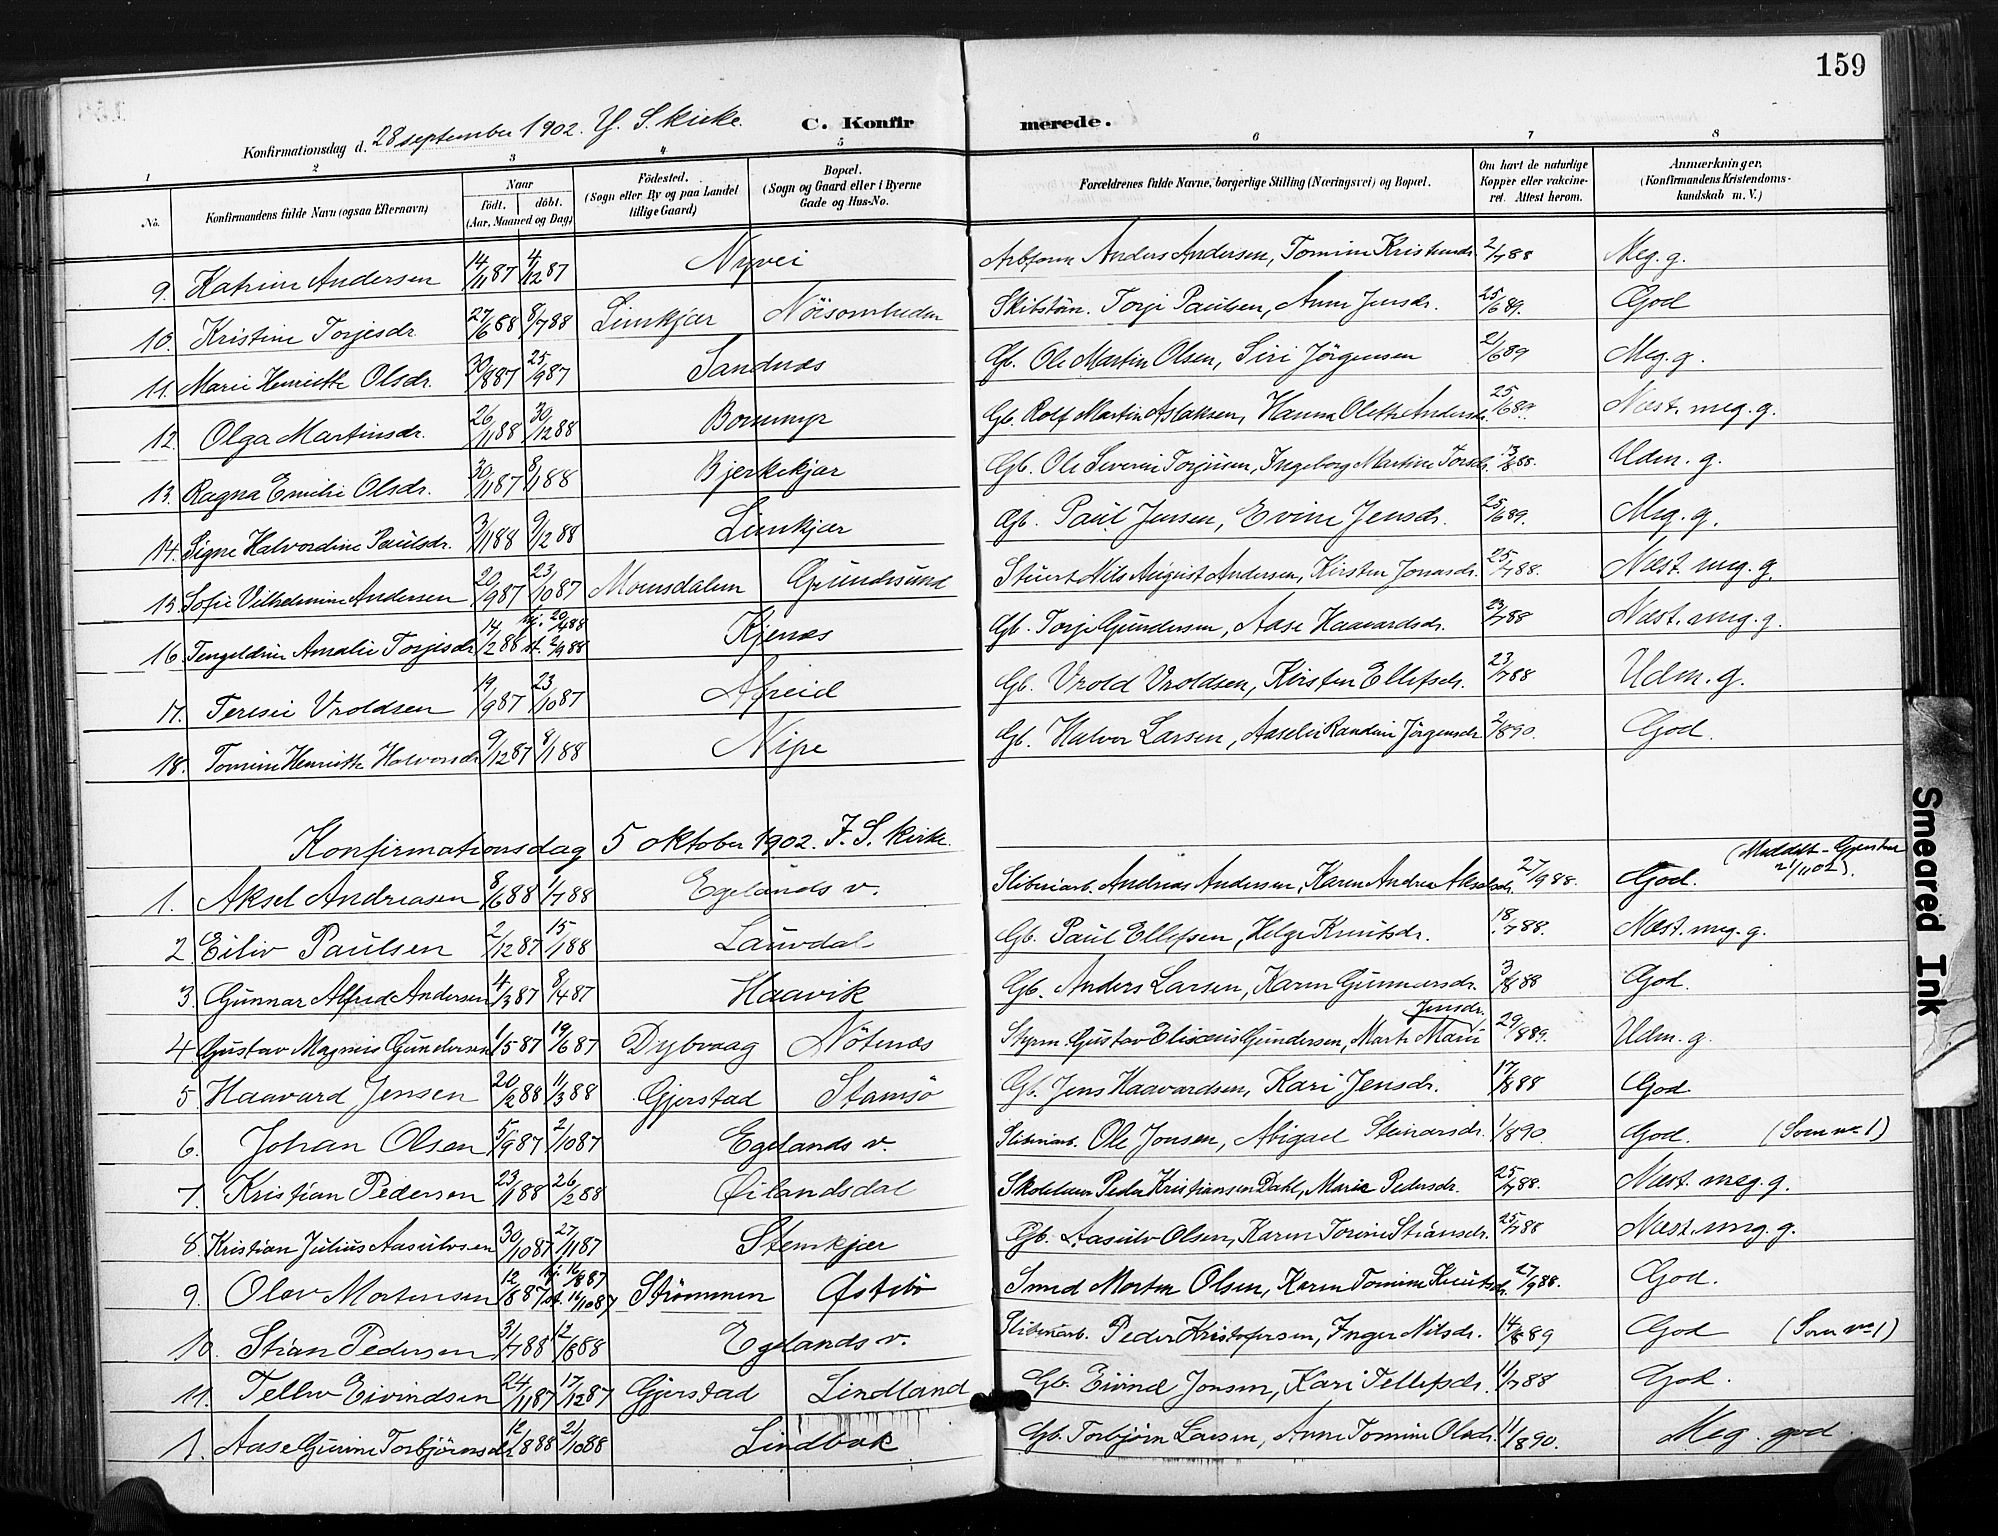 159
Konfirmationsdag d. 28 september 1902. Y. S. kirke. C. Konfirmerede.
1 2 3 4 5 6 7 8
No. Konfirmandens fulde Navn (ogsaa Efternavn) Naar Født. døbt. (Aar, Maaned og Dag) Fødested. (Sogn eller By og paa Landet tillige Gaard) Bopæl. (Sogn og Gaard eller i Byerne Gade og Hus-No. Forældrenes fulde Navne, borgerlige Stilling (Næringsvei) og Bopæl. Om havt de naturlige Kopper eller vakcineret. Attest herom. Anmærkninger. (Konfirmandens Kristendomskundskab m. V.)
9. Katrine Andersen 14/11 87 4/12 87 Nyvei Arbform Anders Andersen, Tomine Kristensdr. 2/7 88 Meg. g.
10. Kristine Torjesdr. 27/6 88 8/7 88 Limkjær Nöisomheden Skibstøm. Torje Paulsen, Anne Jensdr. 25/6 89. God
11. Marie Henriette Olsdr. 30/8 87 25/9 87 Sandnæs Gb. Ole Martin Olsen, Siri Jörgensen 2/6 89 Meg. g.
12. Olga Martinsdr. 26/11 88 30/12 88 Bommyr Gb. Rolf Martin Aslaksen, Hanna Olette Andersdr. 25/6 89. Næst. meg. g.
13. Ragna Emilie Olsdr. 30/11 87 8/1 88 Bjerkekjær Gb. Ole Severin Torjusen, Ingeborg Martine Torsdr. 13/8 88. Udm. g.
14. Signe Halvordine Paulsdr. 3/11 88 9/12 88 Limkjær Gb. Paul Jensen, Evine Jensdr. 25/6 89. Meg. g.
15. Sofie Vilhelmine Andersen 20/9 87 23/10 87 Moensdalen Grundesund Stuert Nils August Andersen, Kirsten Jonasdr. 25/7 88. Næst. meg. g.
16. Tengeldine Amalie Torjesdr. 14/2 88 hj. 20/4 88 st. 2/9 88 Kjenæs Gb. Torje Gundersen, Aase Haavardsdr. 23/7 88 Næst. meg. g.
17. Teresie Vroldsen 19/9 87 23/10 87 Afreid Gb. Vrold Vroldsen, Kirsten Ellefsdr. 23/7 88 Udm. g.
18. Tomine Henriette Halvorsdr. 9/12 87 8/1 88 Nipe Gb. Halvor Larsen, Aaselie Randine Jörgensdr. 2/8 90. God.
Konfirmationsdag 5 oktober 1902. F. S. kirke.
1. Aksel Andreasen 8/6 88 1/7 88 Egelands v. Sliberiarb. Andreas Andersen, Karen Andrea Akselsdr. 27/9 88. God. (Meddelt Gjerstad 21/11 02).
2. Eiliv Paulsen 2/12 87 15/1 88 Lauvdal Gb. Paul Ellefsen, Helge Knutsdr. 18/7 88. Næst. meg. g.
3. Gunnar Alfred Andersen 4/3 87 8/4 87 Haavik Gb. Anders Larsen, Karen Gunnarsdr. 3/8 88 God.
4. Gustav Magnus Gundersen 1/5 87 19/6 87 Dybvaag Nötenæs Styrm. Gustav Elisæus Gundersen, Marte Marie Jensdr. 29/8 89. Udm. g.
5. Haavard Jensen 20/2 88 11/3 88 Gjerstad Stamsö Gb. Jens Haavardsen, Kari Jensdr. 17/8 88 God
6. Johan Olsen 5/9 87 2/10 87 Egelands v. Sliberiarb. Ole Jonsen, Abigael Steinarsdr. 1/8 90. God. (Som no 1)
7. Kristian Pedersen 23/1 88 26/2 88 Øilandsdal Skolelærer Peder Kristiansen Dahl, Marie Pedersdr. 25/7 88. Næst. meg. g.
8. Kristian Julius Aasulvsen 30/10 87 27/11 87 Stemkjær Gb. Aasulv Olsen, Karen Torine Stiansdr. 25/7 88 Næst. meg. g.
9. Olav Mortensen 12/8 87 hj. 16/8 87 st. 16/10 87 Strømmen Østebö Smed Morten Olsen, Karen Tomine Knutsdr. 27/9 88. God.
10. Stian Pedersen 31/7 88 12/8 88 Egelands v. Sliberiarb. Peder Kristofersen, Inger Nilsdr. 14/8 89 God (Som no 1)
11. Tellev Eivindsen 24/11 87 17/12 87 Gjerstad Lindland Gb. Eivind Jonsen, Kari Tellefsdr. 1/7 88 God.
1. Aase Gurine Torbjörnsdr. 12/8 88 21/10 88 Lindbæk Gb. Torbjörn Larsen, Anne Tomine Olsdr. 11/8 90. Meg. god.
Smeared Ink